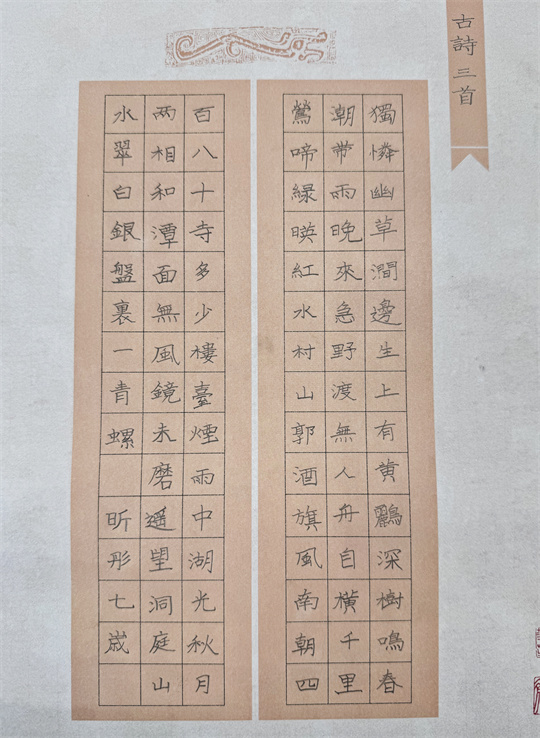 古詩三首
獨憐幽草澗邊生上有黄鸝深樹鳴春
潮帶雨晚來急野渡無人舟自橫千里
鶯啼緑暎紅水村山郭酒旗風南朝四
百八十寺多少樓臺煙雨中湖光秋月
两相和潭面無風鏡未磨遥望洞庭山
水翠白銀盤裏一青螺 昕彤七歲